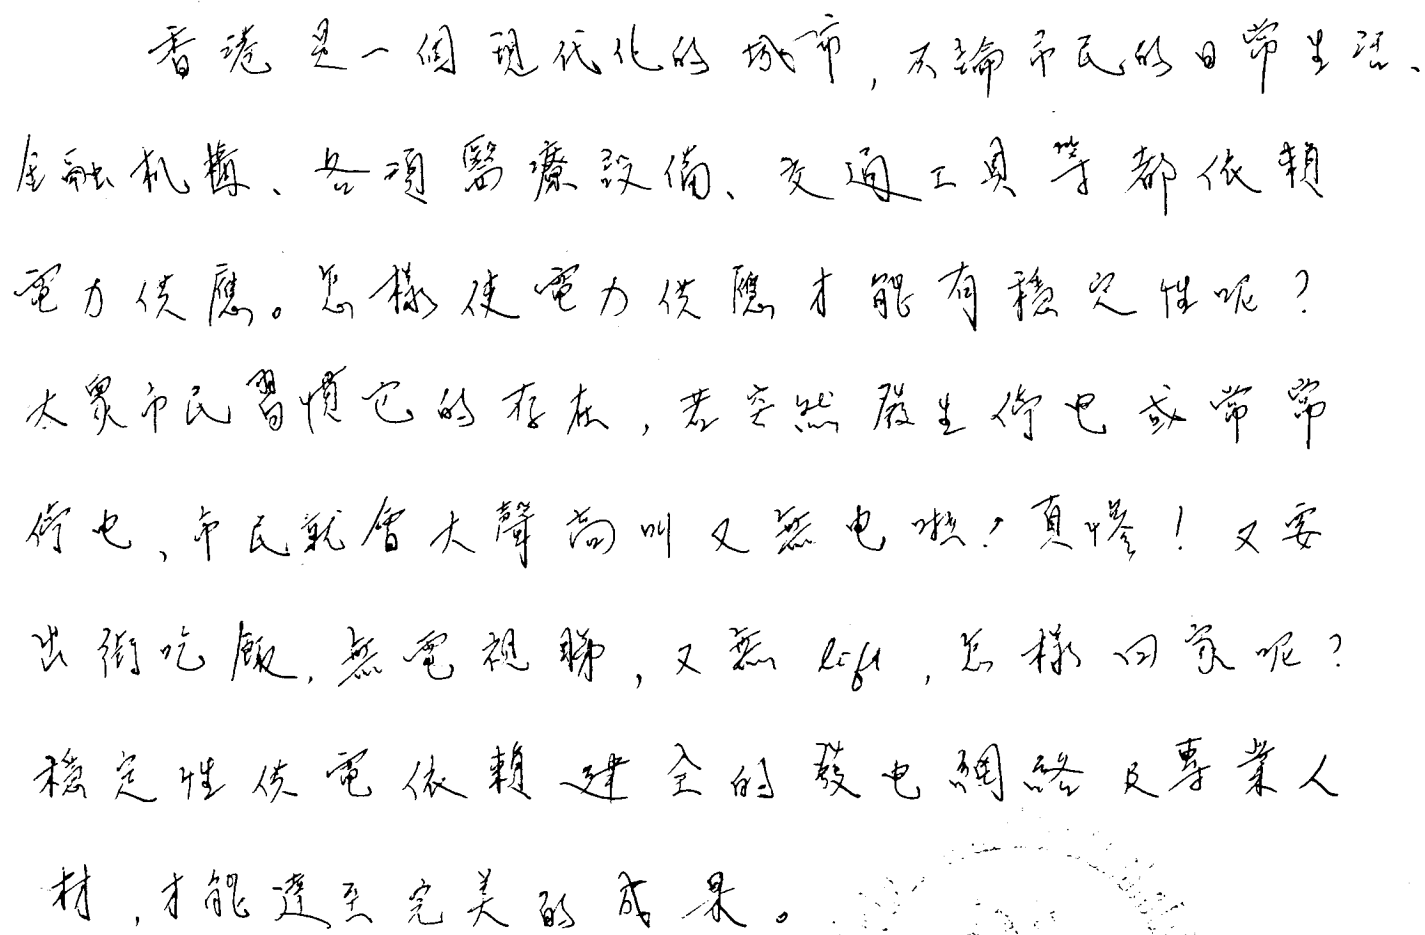 香港是一個現代化的城市，不論市民的日常生活、
金融机構、各項醫療設備、交通工具等都依賴
電力供應。怎樣使電力供應才能有穩定性呢？
大眾市民習慣它的存在，若突然發生停电或常常
停电，市民就會大聲高叫又無电啦！真慘！又要
出街吃飯，無電視睇，又無lift，怎樣回家呢？
穩定性供電依賴建全的發电網絡及專業人
材，才能達至完美的成果。